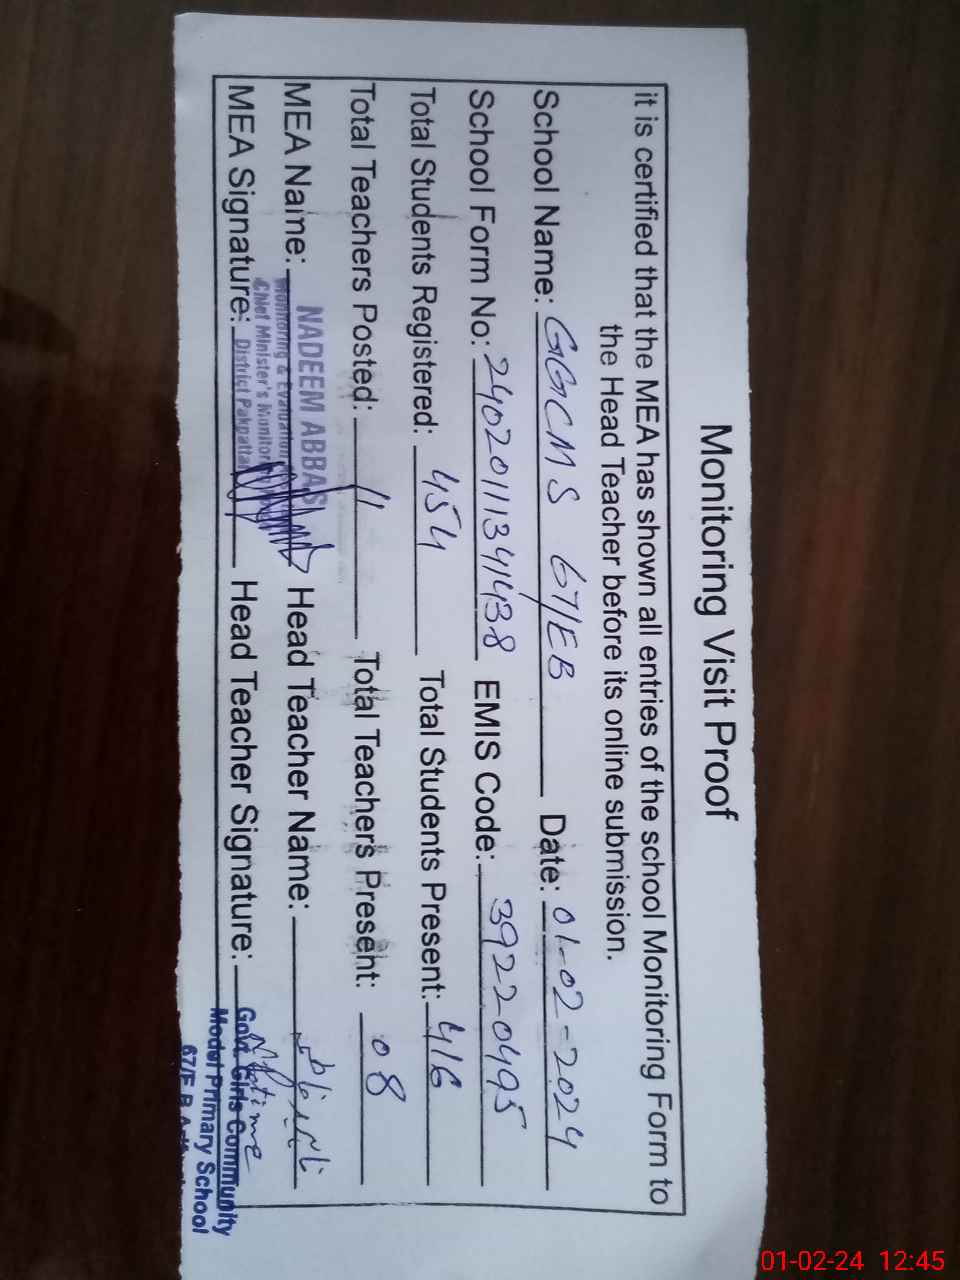 Monitoring Visit Proof
it is certified that the MEA has shown all entries of the school Monitoring Form to
the Head Teacher before its online submission.
School Name: GGCMS 67/EB Date: 01-02-2024
School Form No: 24020111341438 EMIS Code: 39220495
Total Students Registered: 454 Total Students Present: 416
Total Teachers Posted: 11 Total Teachers Present: 08
MEA Name: NADEEM ABBAS Head Teacher Name:
Monitoring & Evaluation
Chief Minister's Monitor
District Pakpattan
MEA Signature: Head Teacher Signature:
Govt. Girls Community
Model Primary School
67/E.B
01-02-24 12:45